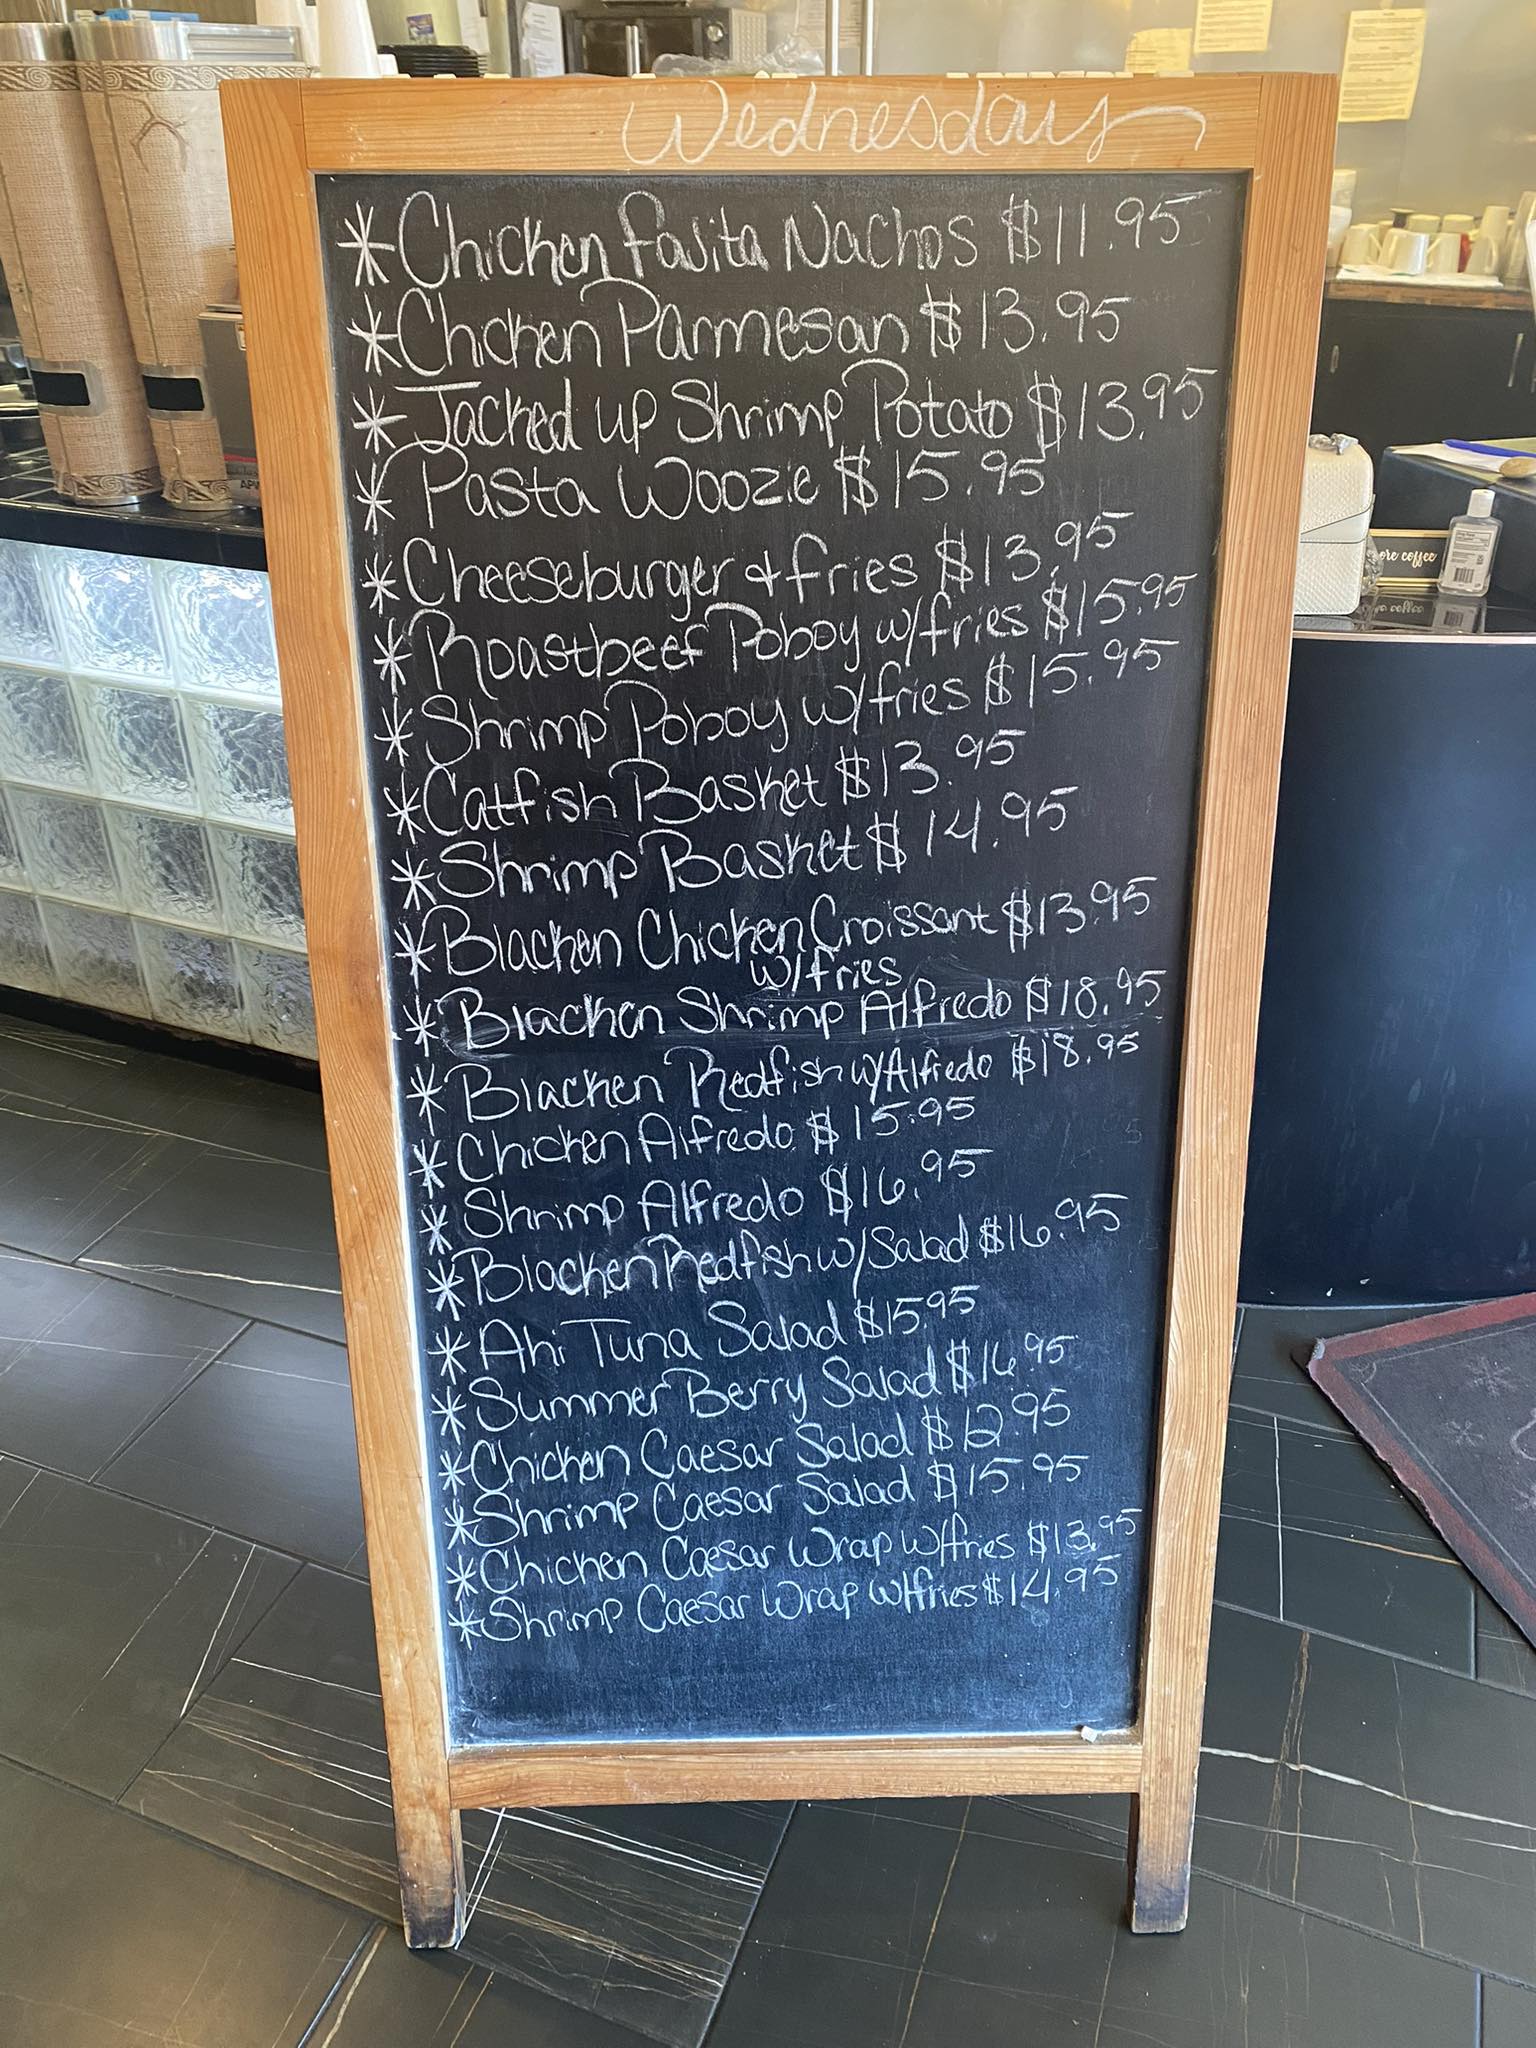 Wednesday
* Chicken Fajita Nachos $11.95
* Chicken Parmesan $13.95
* Jacked up Shrimp Potato $13.95
* Pasta Woozie $15.95
* Cheeseburger & fries $13.95
* Roastbeef Poboy w/fries $15.95
* Shrimp Poboy w/fries $15.95
* Catfish Basket $13.95
* Shrimp Basket $14.95
* Blacken Chicken Croissant $13.95
w/fries
* Blacken Shrimp Alfredo $18.95
* Blacken Redfish w/Alfredo $18.95
* Chicken Alfredo $15.95
* Shrimp Alfredo $16.95
* Blacken Redfish w/Salad $16.95
* Ahi Tuna Salad $15.95
* Summer Berry Salad $16.95
* Chicken Caesar Salad $12.95
* Shrimp Caesar Salad $15.95
* Chicken Caesar Wrap w/fries $13.95
* Shrimp Caesar Wrap w/fries $14.95
ore coffee